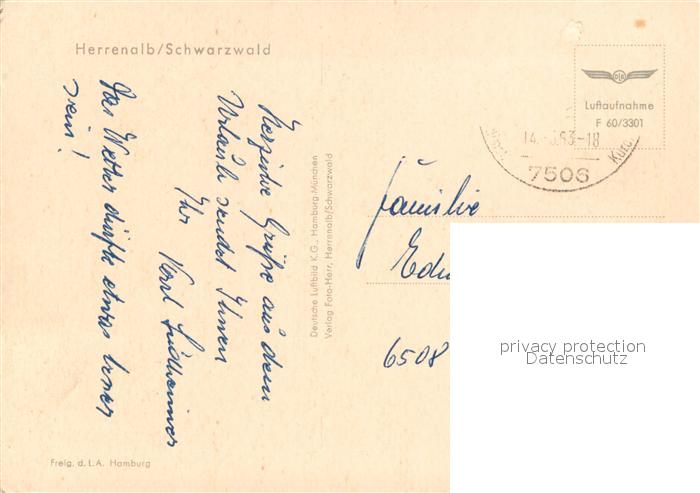 Herrenalb/Schwarzwald
Herzliche Grüße aus dem
Urlaub sendet Ihnen
Ihr Karl
Das Wetter dürfte etwas besser
sein!
Freig. d. L.A. Hamburg
Deutsche Luftbild K.G., Hamburg-München
Verlag Foto-Herr, Herrenalb/Schwarzwald
DLB
Luftaufnahme
F 60/3301
14. 63-18
7506
Familie
6508
privacy protection
Datenschutz